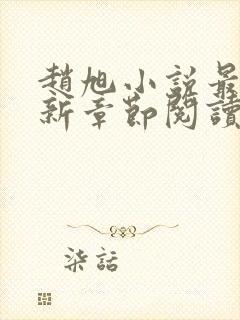 趙旭小說最
新章節閱讀
柒話